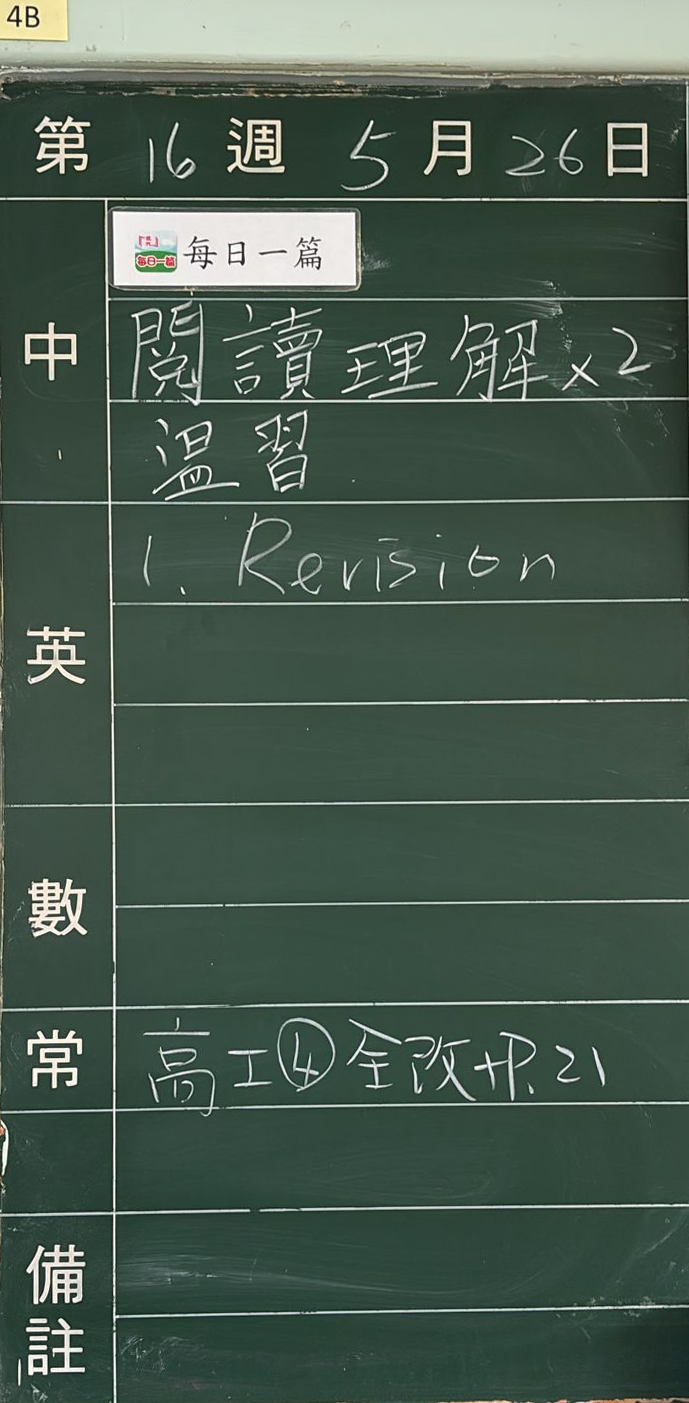 4B
第 16 週 5 月 26 日
中
每日一篇 每日一篇
閱讀理解×2
温習
英
1. Revision
數
常
高工④全改+P.21
備註